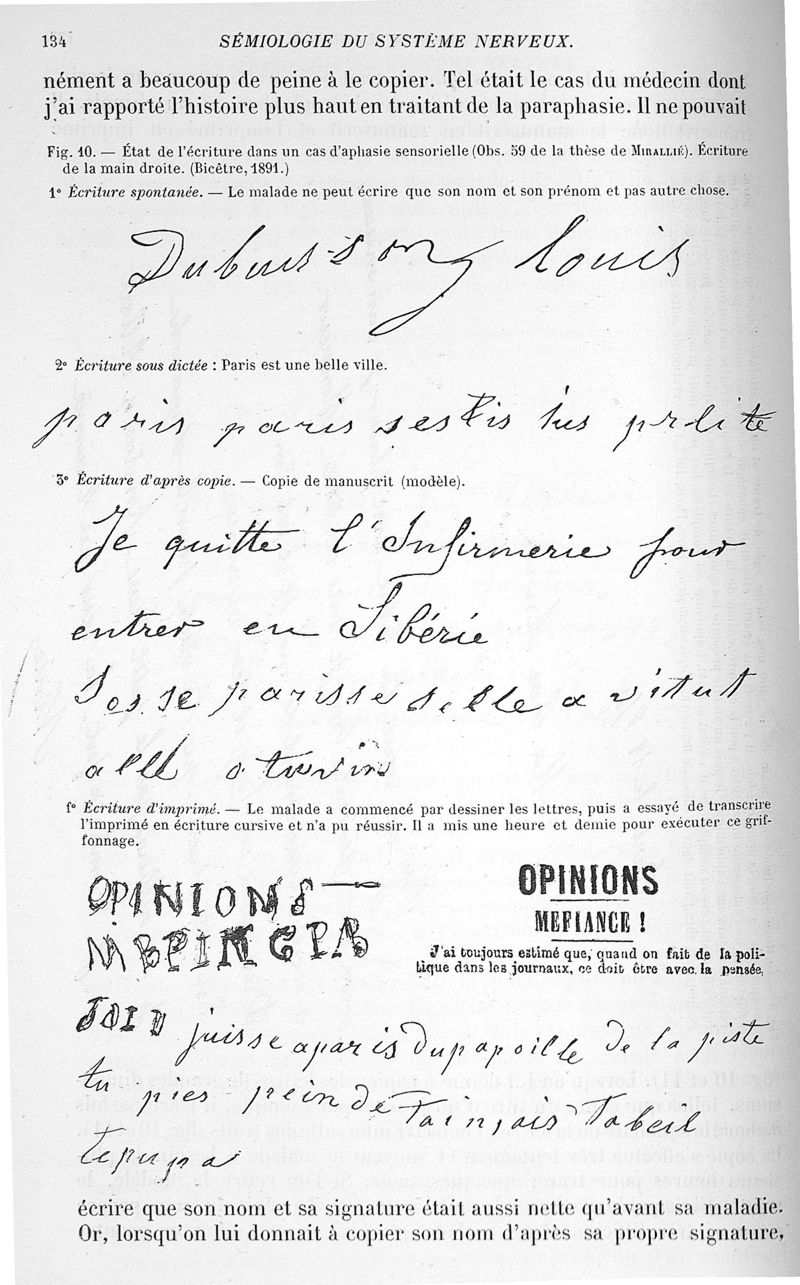 134 SÉMIOLOGIE DU SYSTÈME NERVEUX.
nément a beaucoup de peine à le copier. Tel était le cas du médecin dont
j'ai rapporté l'histoire plus haut en traitant de la paraphasie. Il ne pouvait
Fig. 10. — État de l'écriture dans un cas d'aphasie sensorielle (Obs. 59 de la thèse de MIRALLIÉ). Écriture
de la main droite. (Bicêtre, 1891.)
1° Écriture spontanée. — Le malade ne peut écrire que son nom et son prénom et pas autre chose.
Dubuisson Louis
2° Écriture sous dictée : Paris est une belle ville.
paris paris
3° Écriture d'après copie. — Copie de manuscrit (modèle).
Je quitte l'Infirmerie pour
entrer en Sibérie
parisse selle a
a
f° Écriture d'imprimé. — Le malade a commencé par dessiner les lettres, puis a essayé de transcrire
l'imprimé en écriture cursive et n'a pu réussir. Il a mis une heure et demie pour exécuter ce grif-
fonnage.
OPINIONS
OPINIONS
MEFIANCE !
J'ai toujours estimé que, quand on fait de la poli-
tique dans les journaux, ce doit être avec la pensée,
juisse aparis dupapoille de la piste
tu pies pein de
tepupa
écrire que son nom et sa signature était aussi nette qu'avant sa maladie.
Or, lorsqu'on lui donnait à copier son nom d'après sa propre signature,